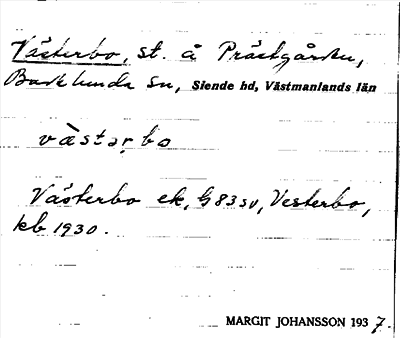 Västerbo, st. å Prästgården,
Barklunda sn, Siende hd, Västmanlands län
vàstərbo
Västerbo ek, G 83 sv, Vesterbo,
kb 1930.
MARGIT JOHANSSON 1937.